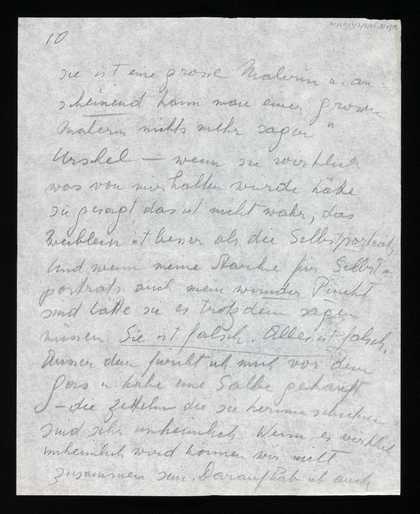 10
sie ist eine grosse Malerin u. an-
scheinend kann man einer grossen
Malerin nichts mehr sagen"
Urshel – wenn sie wirklich
was von mir halten würde hätte
sie gesagt das ist nicht wahr, das
Weiblein ist besser als die Selbstportraits,
Und wenn meine Starke für Selbst-
portraits auch mein wunder Punkt
sind hätte sie es trotzdem sagen
müssen. Sie ist falsch. Alles ist falsch.
Ausser dem fürchte ich mich vor dem
u habe eine Salbe gekauft
– die Zetteln die sie herum
sind sehr unheimlich. Wenn es wirklich
unheimlich wird können wir nicht
zusammen sein. Darauf hab ich auch